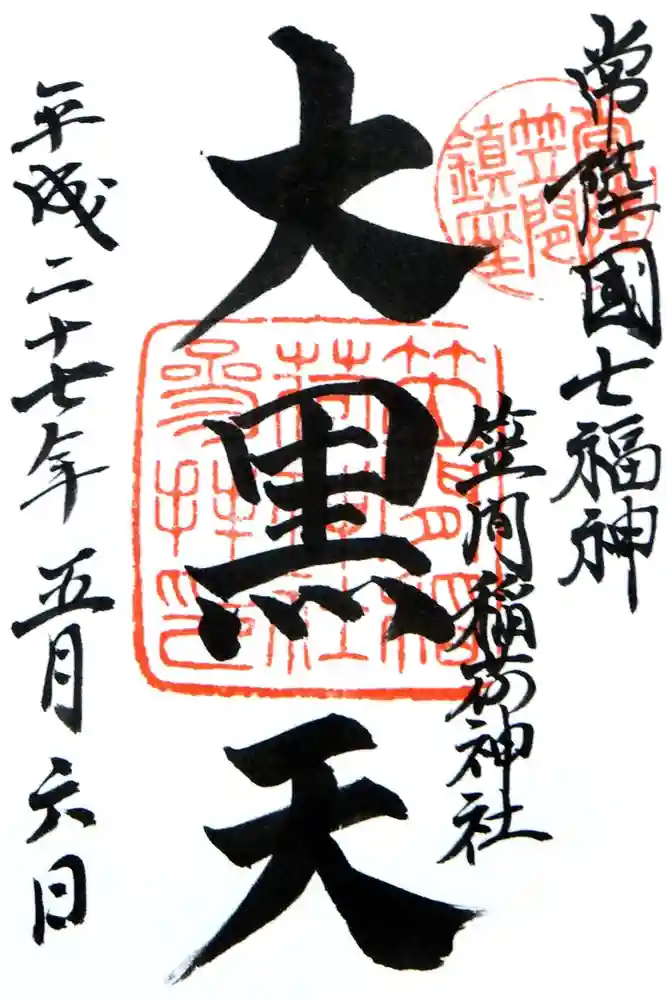 常陸國七福神
笠間稲荷神社
大黒天
平成二十七年五月六日
笠間稲
荷神社
参拝印
笠間
鎮座